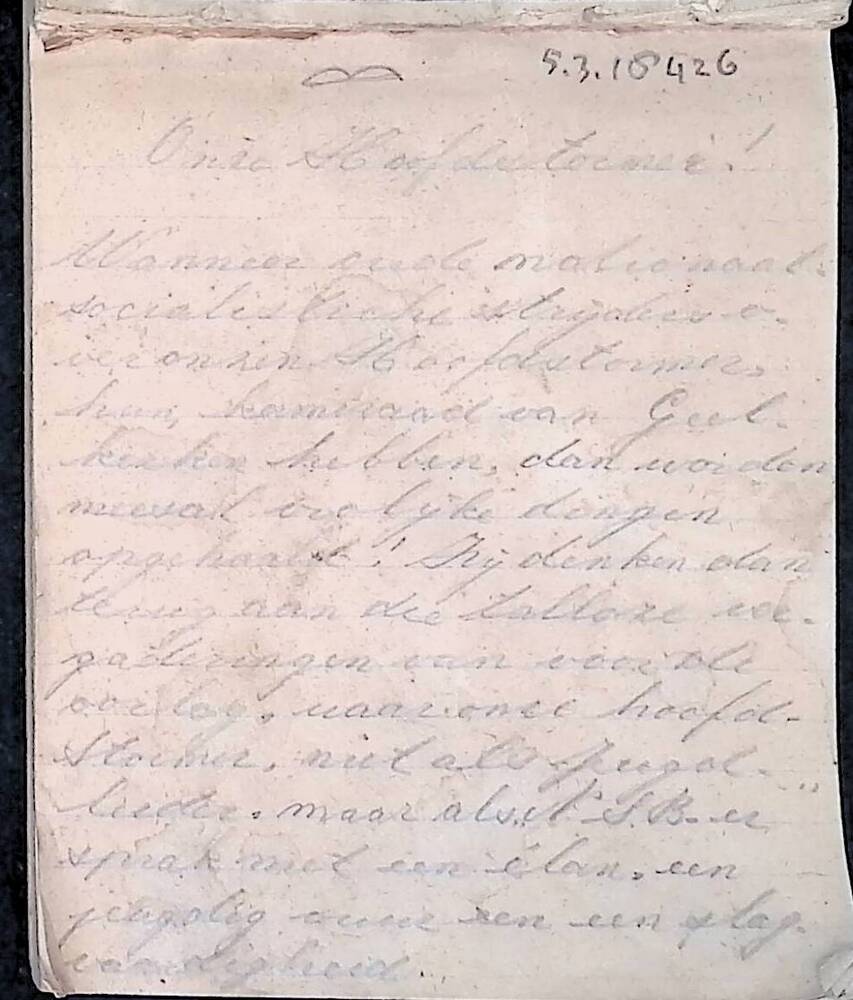 5.3.18426
Onze Hoofdstormer!
Wanneer oude nationaal-
socialistische strijders o-
ver onzen Hoofdstormer,
hun kameraad van Geel-
kerken hebben, dan worden
meestal vrolijke dingen
opgehaald! Zij denken dan
terug aan die talloze ver-
gaderingen van voor de
oorlog, waar onze hoofd-
stormer, niet als Jeugd-
leider, maar als "N.S.B.-er"
sprak met een élan, een
jeugdig vuur en een slag-
vaardigheid.